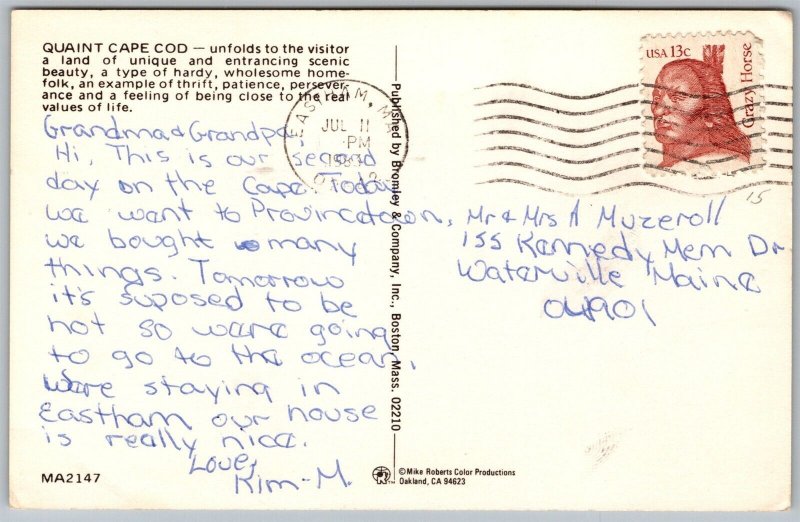 QUAINT CAPE COD — unfolds to the visitor
a land of unique and entrancing scenic
beauty, a type of hardy, wholesome home-
folk, an example of thrift, patience, persever-
ance and a feeling of being close to the real
values of life.
Grandma & Grandpa,
Hi, This is our second
day on the Cape. Today
we went to Provincetown,
we bought many
things. Tomorrow
it's suposed to be
hot so were going
to go to the ocean.
were staying in
Eastham our house
is really nice.
Love,
Kim-M.
MA2147
Published by Bromley & Company, Inc., Boston, Mass. 02210
EASTHAM, MA
JUL 11
PM
USA 13c
Crazy Horse
15
Mr & Mrs A Muzeroll
155 Kennedy Mem Dr
Waterville Maine
04901
© Mike Roberts Color Productions
Oakland, CA 94623